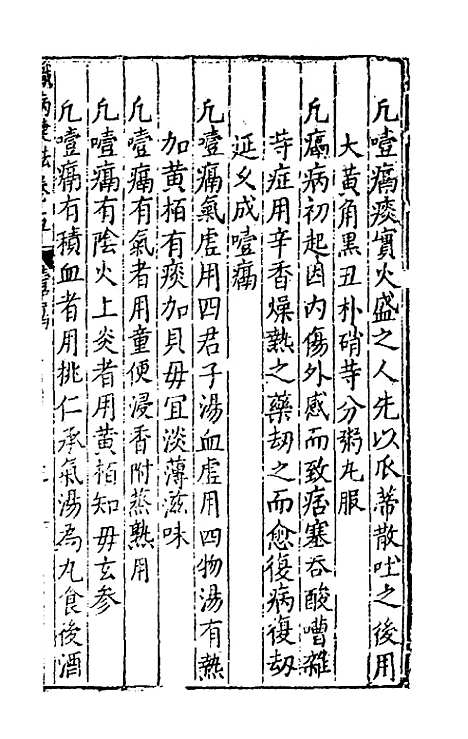 凡噎膈痰實火盛之人先以瓜蒂散吐之後用
大黃角黑丑朴硝等分粥丸服
凡膈病初起因內傷外感而致痞塞吞酸嘈雜
等症用辛香燥熱之藥刼之而愈復病復刼
延久成噎膈
凡噎膈氣虛用四君子湯血虛用四物湯有熱
加黃栢有痰加貝毋宜淡薄滋味
凡噎膈有氣者用童便浸香附蒸熟用
凡噎膈有陰火上炎者用黃栢知毋玄參
凡噎膈有積血者用桃仁承氣湯為丸食後酒